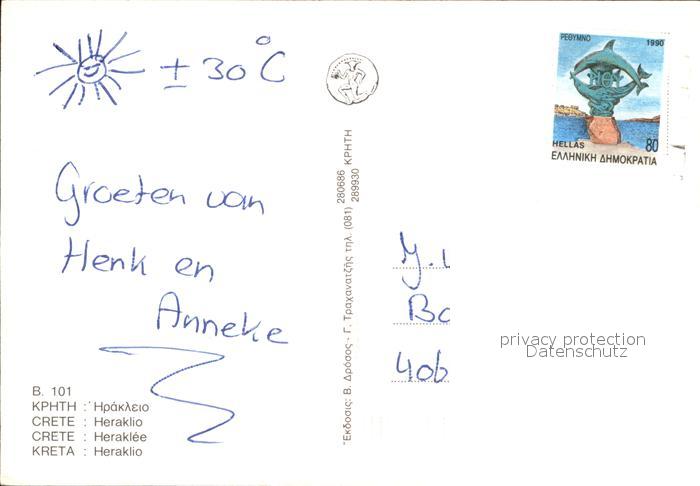 ± 30°C
Groeten van
Henk en
Anneke
B. 101
ΚΡΗΤΗ : Ἡράκλειο
CRETE : Heraklio
CRETE : Heraklée
KRETA : Heraklio
Ἔκδοσις: Β. Δρόσος - Γ. Τραχανατζῆς τηλ. (081) 280686 289930 ΚΡΗΤΗ
ΡΕΘΥΜΝΟ 1990
HELLAS 80
ΕΛΛΗΝΙΚΗ ΔΗΜΟΚΡΑΤΙΑ
J.
Bo
406
privacy protection
Datenschutz